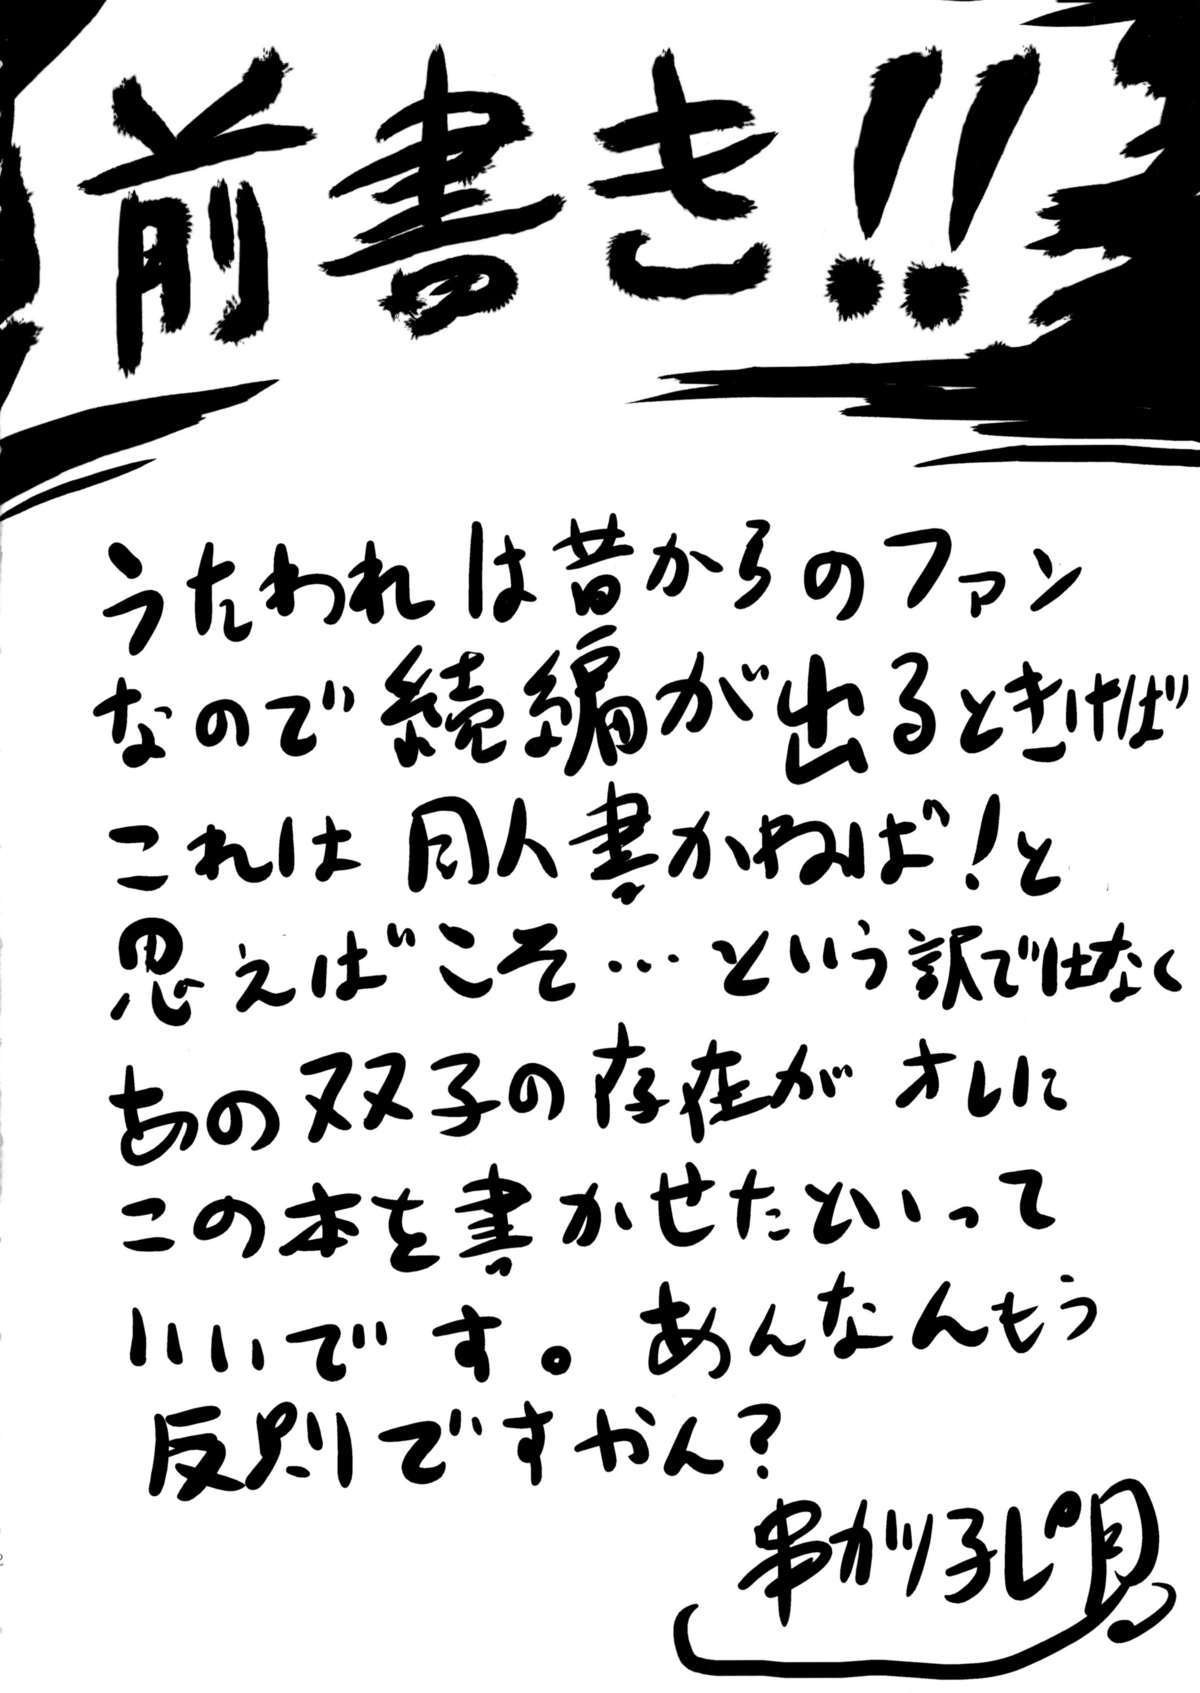 前書き!!
うたわれは昔からのファン
なので続編が出るときけば
これは同人書かねば!と
思えばこそ…という訳ではなく
あの双子の存在がオレに
この本を書かせたといって
いいです。あんなんもう
反則ですやん?
串カツ孔明
2